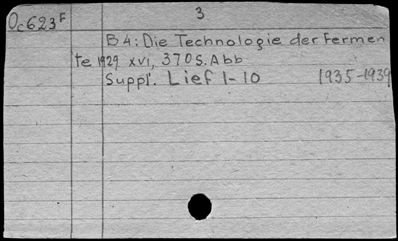 Oc623F
3
B4: Die Technologie der Fermen
te 1929 xvi, 370 S. Abb
Suppl. Lief 1-10 1935-1939